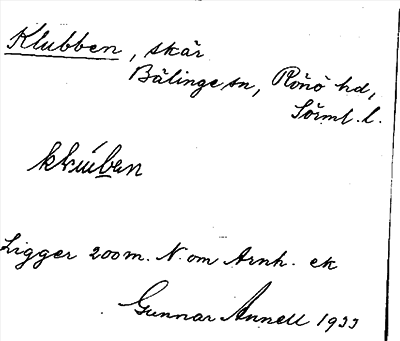 Klubben, skär
Bälinge sn, Rönö hd,
Sörml. l.
Ligger 200 m. N. om Arnh. ek
Gunnar Annell 1933